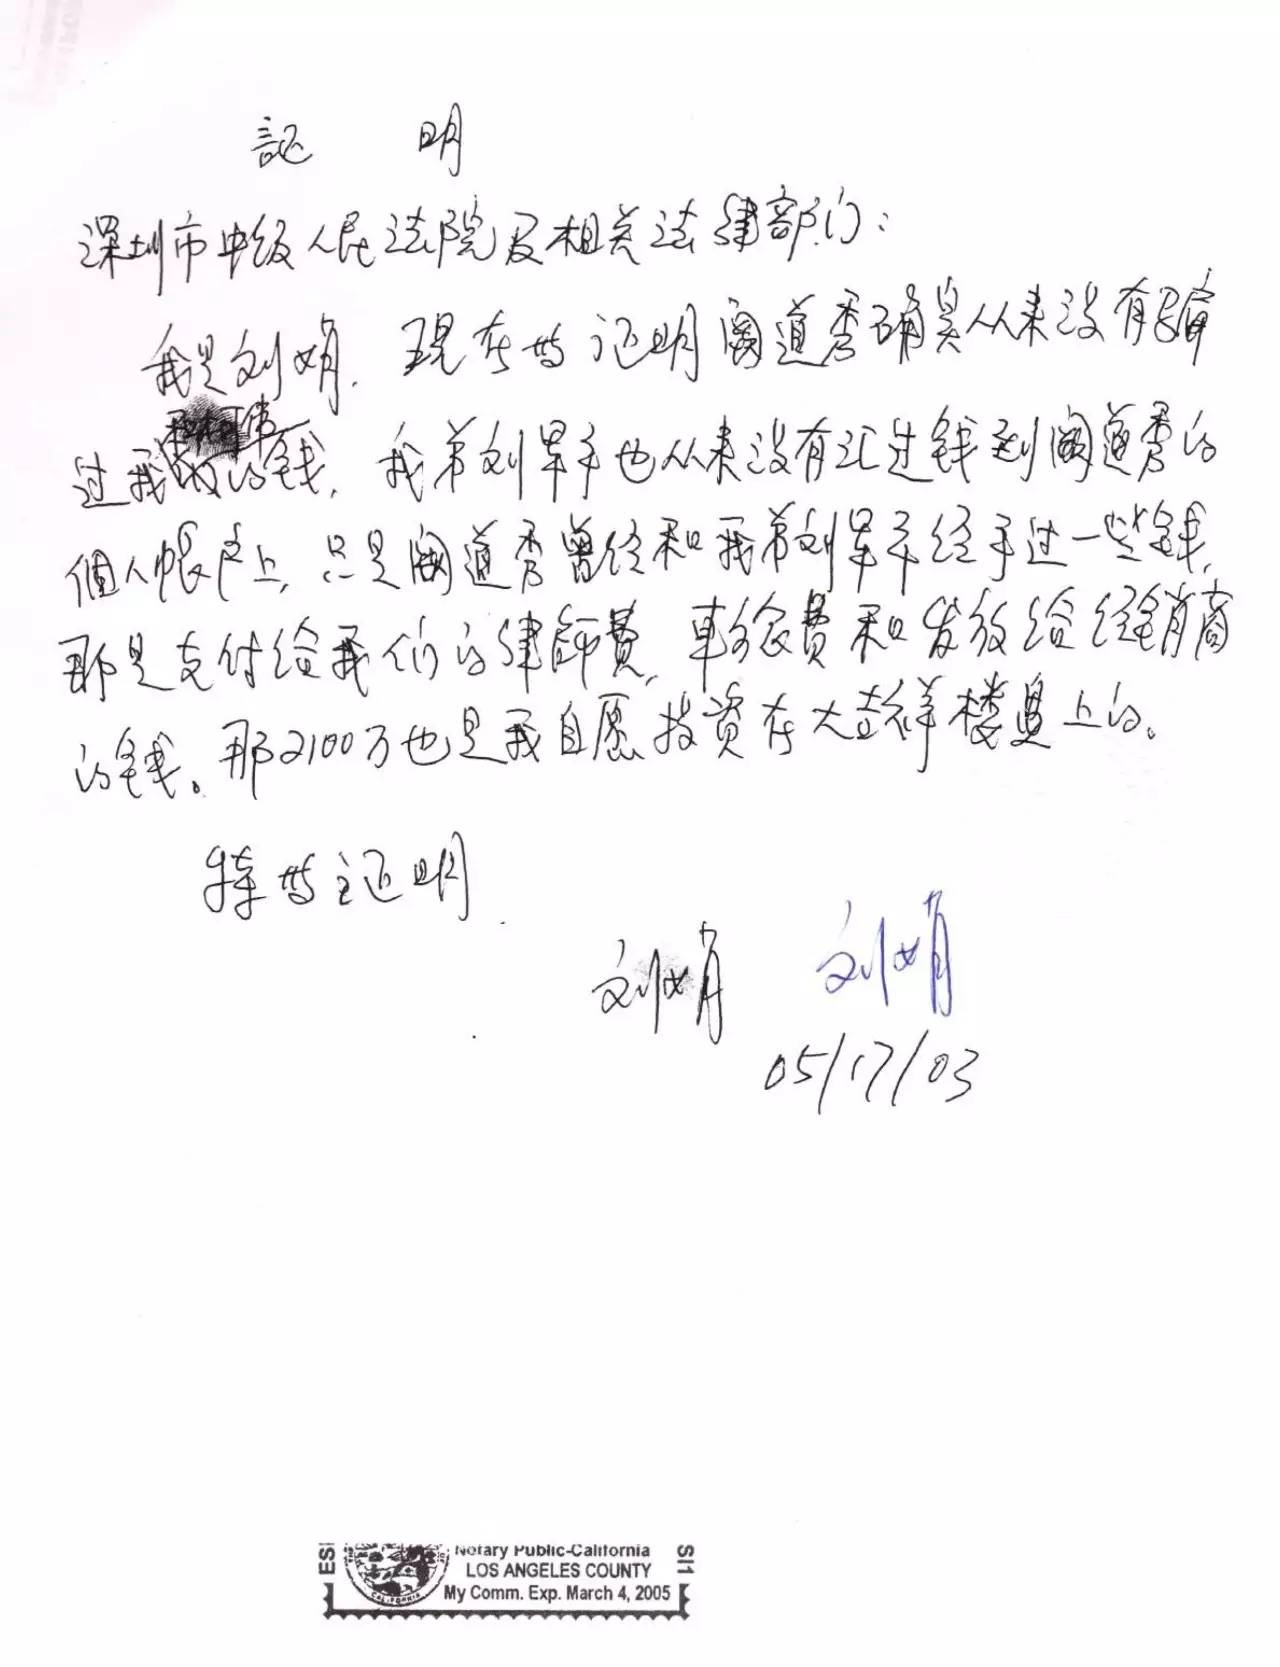 証 明
深圳市中级人民法院及相关法律部门：
我是刘娟. 现在此证明阚道秀确实从来没有骗
过我的钱. 我弟刘旱平也从来没有汇过钱到阚道秀的
個人帳户上. 只是阚道秀曾经和我弟刘旱平经手过一些钱.
那是支付给我们的律師费. 車旅费和发放给经销商
的钱. 那2100万也是我自愿投资在大吉祥楼复上的。
特此证明.
刘娟 刘娟
05/17/03
Notary Public-California
LOS ANGELES COUNTY
My Comm. Exp. March 4, 2005